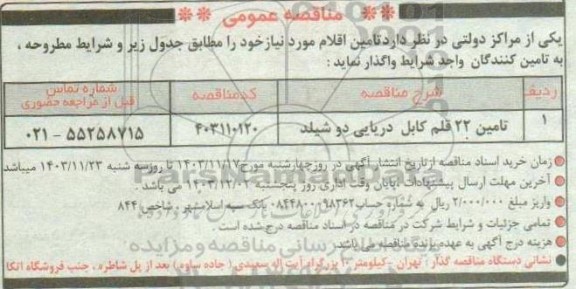 مناقصه عمومی
یکی از مراکز دولتی در نظر دارد تامین اقلام مورد نیاز خود را مطابق جدول زیر و شرایط مطروحه ،
به تامین کنندگان واجد شرایط واگذار نماید :
ردیف شرح مناقصه کد مناقصه شماره تماس قبل از مراجعه حضوری
۱ تامین ۲۲ قلم کابل دریایی دو شیلد ۴۰۳۱۱۰۱۲۰ ۰۲۱ - ۵۵۲۵۸۷۱۵
زمان خرید اسناد مناقصه از تاریخ انتشار آگهی در روز چهارشنبه مورخ ۱۴۰۳/۱۱/۱۷ تا روز سه شنبه ۱۴۰۳/۱۱/۲۳ میباشد
آخرین مهلت ارسال پیشنهادات پایان وقت اداری روز پنجشنبه ۱۴۰۳/۱۲/۰۲ می باشد .
واریز مبلغ ۲/۰۰۰/۰۰۰ ریال به شماره حساب بانک سپه اسلامشهر ، شاخص ۸۴۴
تمامی جزئیات و شرایط شرکت در مناقصه در اسناد مناقصه درج شده است .
هزینه درج آگهی به عهده برنده مناقصه می باشد
نشانی دستگاه مناقصه گذار : تهران - کیلومتر بزرگراه آیت اله سعیدی ( جاده ساوه ) بعد از پل شاطره ، جنب فروشگاه اتکا
ParsNamadData